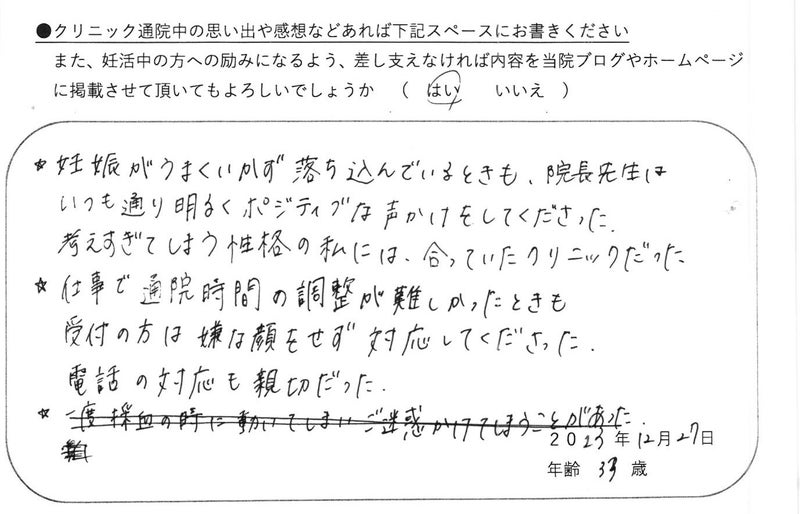 ●クリニック通院中の思い出や感想などあれば下記スペースにお書きください
また、妊活中の方への励みになるよう、差し支えなければ内容を当院ブログやホームページ
に掲載させて頂いてもよろしいでしょうか （ はい いいえ ）
☆ 妊娠がうまくいかず落ち込んでいるときも、院長先生は
いつも通り明るくポジティブな声かけをしてくださった.
考えすぎてしまう性格の私には、合っていたクリニックだった
☆ 仕事で通院時間の調整が難しかったときも
受付の方は嫌な顔をせず対応してくださった.
電話の対応も親切だった.
☆ 一度採血の時に動いてしまいご迷惑かけてしまうことがあった.
2023年12月27日
年齢 33 歳